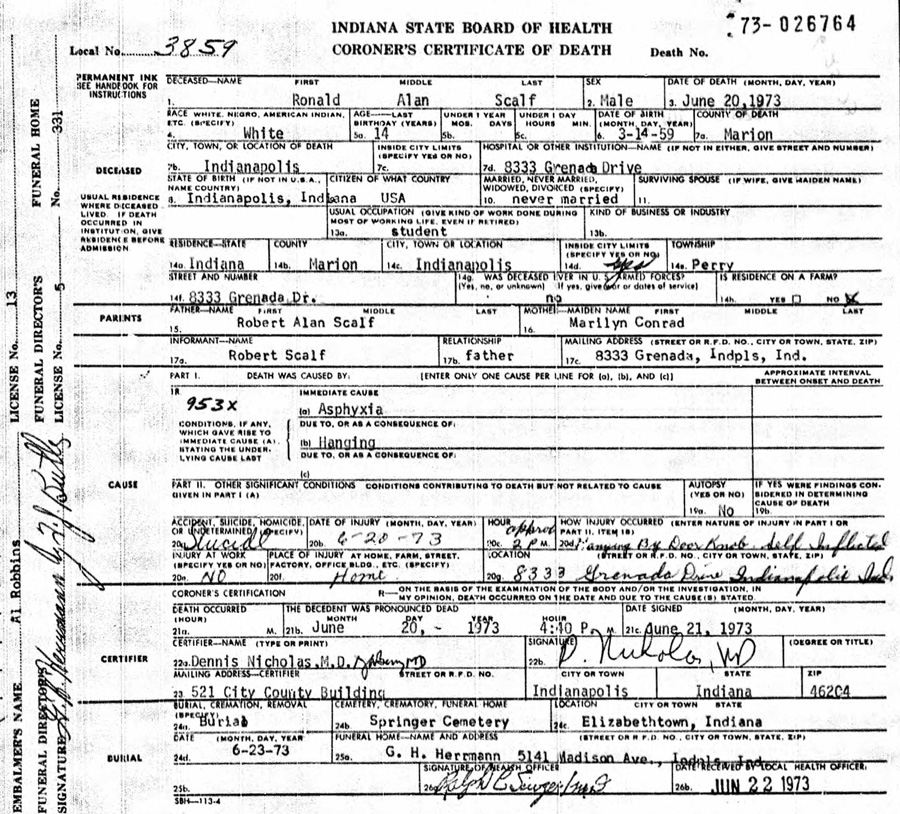 INDIANA STATE BOARD OF HEALTH
73-026764
Local No. 3859 CORONER'S CERTIFICATE OF DEATH Death No.
PERMANENT INK SEE HANDBOOK FOR INSTRUCTIONS
DECEASED—NAME FIRST MIDDLE LAST SEX DATE OF DEATH (MONTH, DAY, YEAR)
1. Ronald Alan Scalf 2. Male 3. June 20,1973
RACE WHITE, NEGRO, AMERICAN INDIAN, ETC. (SPECIFY) AGE—LAST BIRTHDAY (YEARS) UNDER 1 YEAR MOS. DAYS UNDER 1 DAY HOURS MIN. DATE OF BIRTH (MONTH, DAY, YEAR) COUNTY OF DEATH
4. White 5a. 14 5b. 5c. 6. 3-14-59 7a. Marion
CITY, TOWN, OR LOCATION OF DEATH INSIDE CITY LIMITS (SPECIFY YES OR NO) HOSPITAL OR OTHER INSTITUTION—NAME (IF NOT IN EITHER, GIVE STREET AND NUMBER)
DECEASED
7b. Indianapolis 7c. 7d. 8333 Grenada Drive
STATE OF BIRTH (IF NOT IN U.S.A., NAME COUNTRY) CITIZEN OF WHAT COUNTRY MARRIED, NEVER MARRIED, WIDOWED, DIVORCED (SPECIFY) SURVIVING SPOUSE (IF WIFE, GIVE MAIDEN NAME)
8. Indianapolis, Indiana USA 10. never married 11.
USUAL RESIDENCE WHERE DECEASED LIVED. IF DEATH OCCURRED IN INSTITUTION, GIVE RESIDENCE BEFORE ADMISSION
USUAL OCCUPATION (GIVE KIND OF WORK DONE DURING MOST OF WORKING LIFE, EVEN IF RETIRED) KIND OF BUSINESS OR INDUSTRY
13a. student 13b.
RESIDENCE—STATE COUNTY CITY, TOWN OR LOCATION INSIDE CITY LIMITS (SPECIFY YES OR NO) TOWNSHIP
14a. Indiana 14b. Marion 14c. Indianapolis 14d. yes 14e. Perry
STREET AND NUMBER 14g. WAS DECEASED EVER IN U.S. ARMED FORCES? (Yes, no, or unknown) (If yes, give war or dates of service) IS RESIDENCE ON A FARM?
14f. 8333 Grenada Dr. no 14h. YES NO X
PARENTS
FATHER—NAME FIRST MIDDLE LAST MOTHER—MAIDEN NAME FIRST MIDDLE LAST
15. Robert Alan Scalf 16. Marilyn Conrad
INFORMANT—NAME RELATIONSHIP MAILING ADDRESS (STREET OR R.F.D. NO., CITY OR TOWN, STATE, ZIP)
17a. Robert Scalf 17b. father 17c. 8333 Grenada, Indpls, Ind.
PART I. DEATH WAS CAUSED BY: [ENTER ONLY ONE CAUSE PER LINE FOR (a), (b), AND (c)] APPROXIMATE INTERVAL BETWEEN ONSET AND DEATH
18 IMMEDIATE CAUSE
953X (a) Asphyxia
CONDITIONS, IF ANY, WHICH GAVE RISE TO IMMEDIATE CAUSE (A). STATING THE UNDERLYING CAUSE LAST
DUE TO, OR AS A CONSEQUENCE OF:
(b) Hanging
DUE TO, OR AS A CONSEQUENCE OF:
(c)
CAUSE
PART II. OTHER SIGNIFICANT CONDITIONS CONDITIONS CONTRIBUTING TO DEATH BUT NOT RELATED TO CAUSE GIVEN IN PART I (A) AUTOPSY (YES OR NO) IF YES WERE FINDINGS CONSIDERED IN DETERMINING CAUSE OF DEATH
19a. No 19b.
ACCIDENT, SUICIDE, HOMICIDE, OR UNDETERMINED (SPECIFY) DATE OF INJURY (MONTH, DAY, YEAR) HOUR HOW INJURY OCCURRED (ENTER NATURE OF INJURY IN PART I OR PART II, ITEM 18)
20a. Suicide 20b. 6-20-73 20c. approx 2 P M. 20d. Hanging By Door Knob self inflicted
INJURY AT WORK (SPECIFY YES OR NO) PLACE OF INJURY AT HOME, FARM, STREET, FACTORY, OFFICE BLDG., ETC. (SPECIFY) LOCATION (STREET OR R.F.D. NO., CITY OR TOWN, STATE, ZIP)
20e. NO 20f. Home 20g. 8333 Grenada Drive Indianapolis Ind.
CORONER'S CERTIFICATION R—ON THE BASIS OF THE EXAMINATION OF THE BODY AND/OR THE INVESTIGATION, IN MY OPINION, DEATH OCCURRED ON THE DATE AND DUE TO THE CAUSE(S) STATED.
DEATH OCCURRED (HOUR) THE DECEDENT WAS PRONOUNCED DEAD MONTH DAY YEAR HOUR DATE SIGNED (MONTH, DAY, YEAR)
21a. M. 21b. June 20, - 1973 4:40 P. M. 21c. June 21, 1973
CERTIFIER
CERTIFIER—NAME (TYPE OR PRINT) SIGNATURE (DEGREE OR TITLE)
22a. Dennis Nicholas, M.D. 22b. D. Nicholas, MD
MAILING ADDRESS—CERTIFIER STREET OR R.F.D. NO. CITY OR TOWN STATE ZIP
23. 521 City County Building Indianapolis Indiana 46204
BURIAL, CREMATION, REMOVAL (SPECIFY) CEMETERY, CREMATORY, FUNERAL HOME LOCATION CITY OR TOWN STATE
24a. Burial 24b. Springer Cemetery 24c. Elizabethtown, Indiana
BURIAL
DATE (MONTH, DAY, YEAR) FUNERAL HOME—NAME AND ADDRESS (STREET OR R.F.D. NO., CITY OR TOWN, STATE, ZIP)
24d. 6-23-73 25a. G. H. Herrmann 5141 Madison Ave., Indpls Ind.
SIGNATURE OF HEALTH OFFICER DATE RECEIVED BY LOCAL HEALTH OFFICER
25b. 26a. 26b. JUN 22 1973
SBH—113-4
EMBALMER'S NAME Al Robbins LICENSE No. 13
FUNERAL DIRECTOR'S SIGNATURE FUNERAL DIRECTOR'S LICENSE No. 5
FUNERAL HOME No. 331